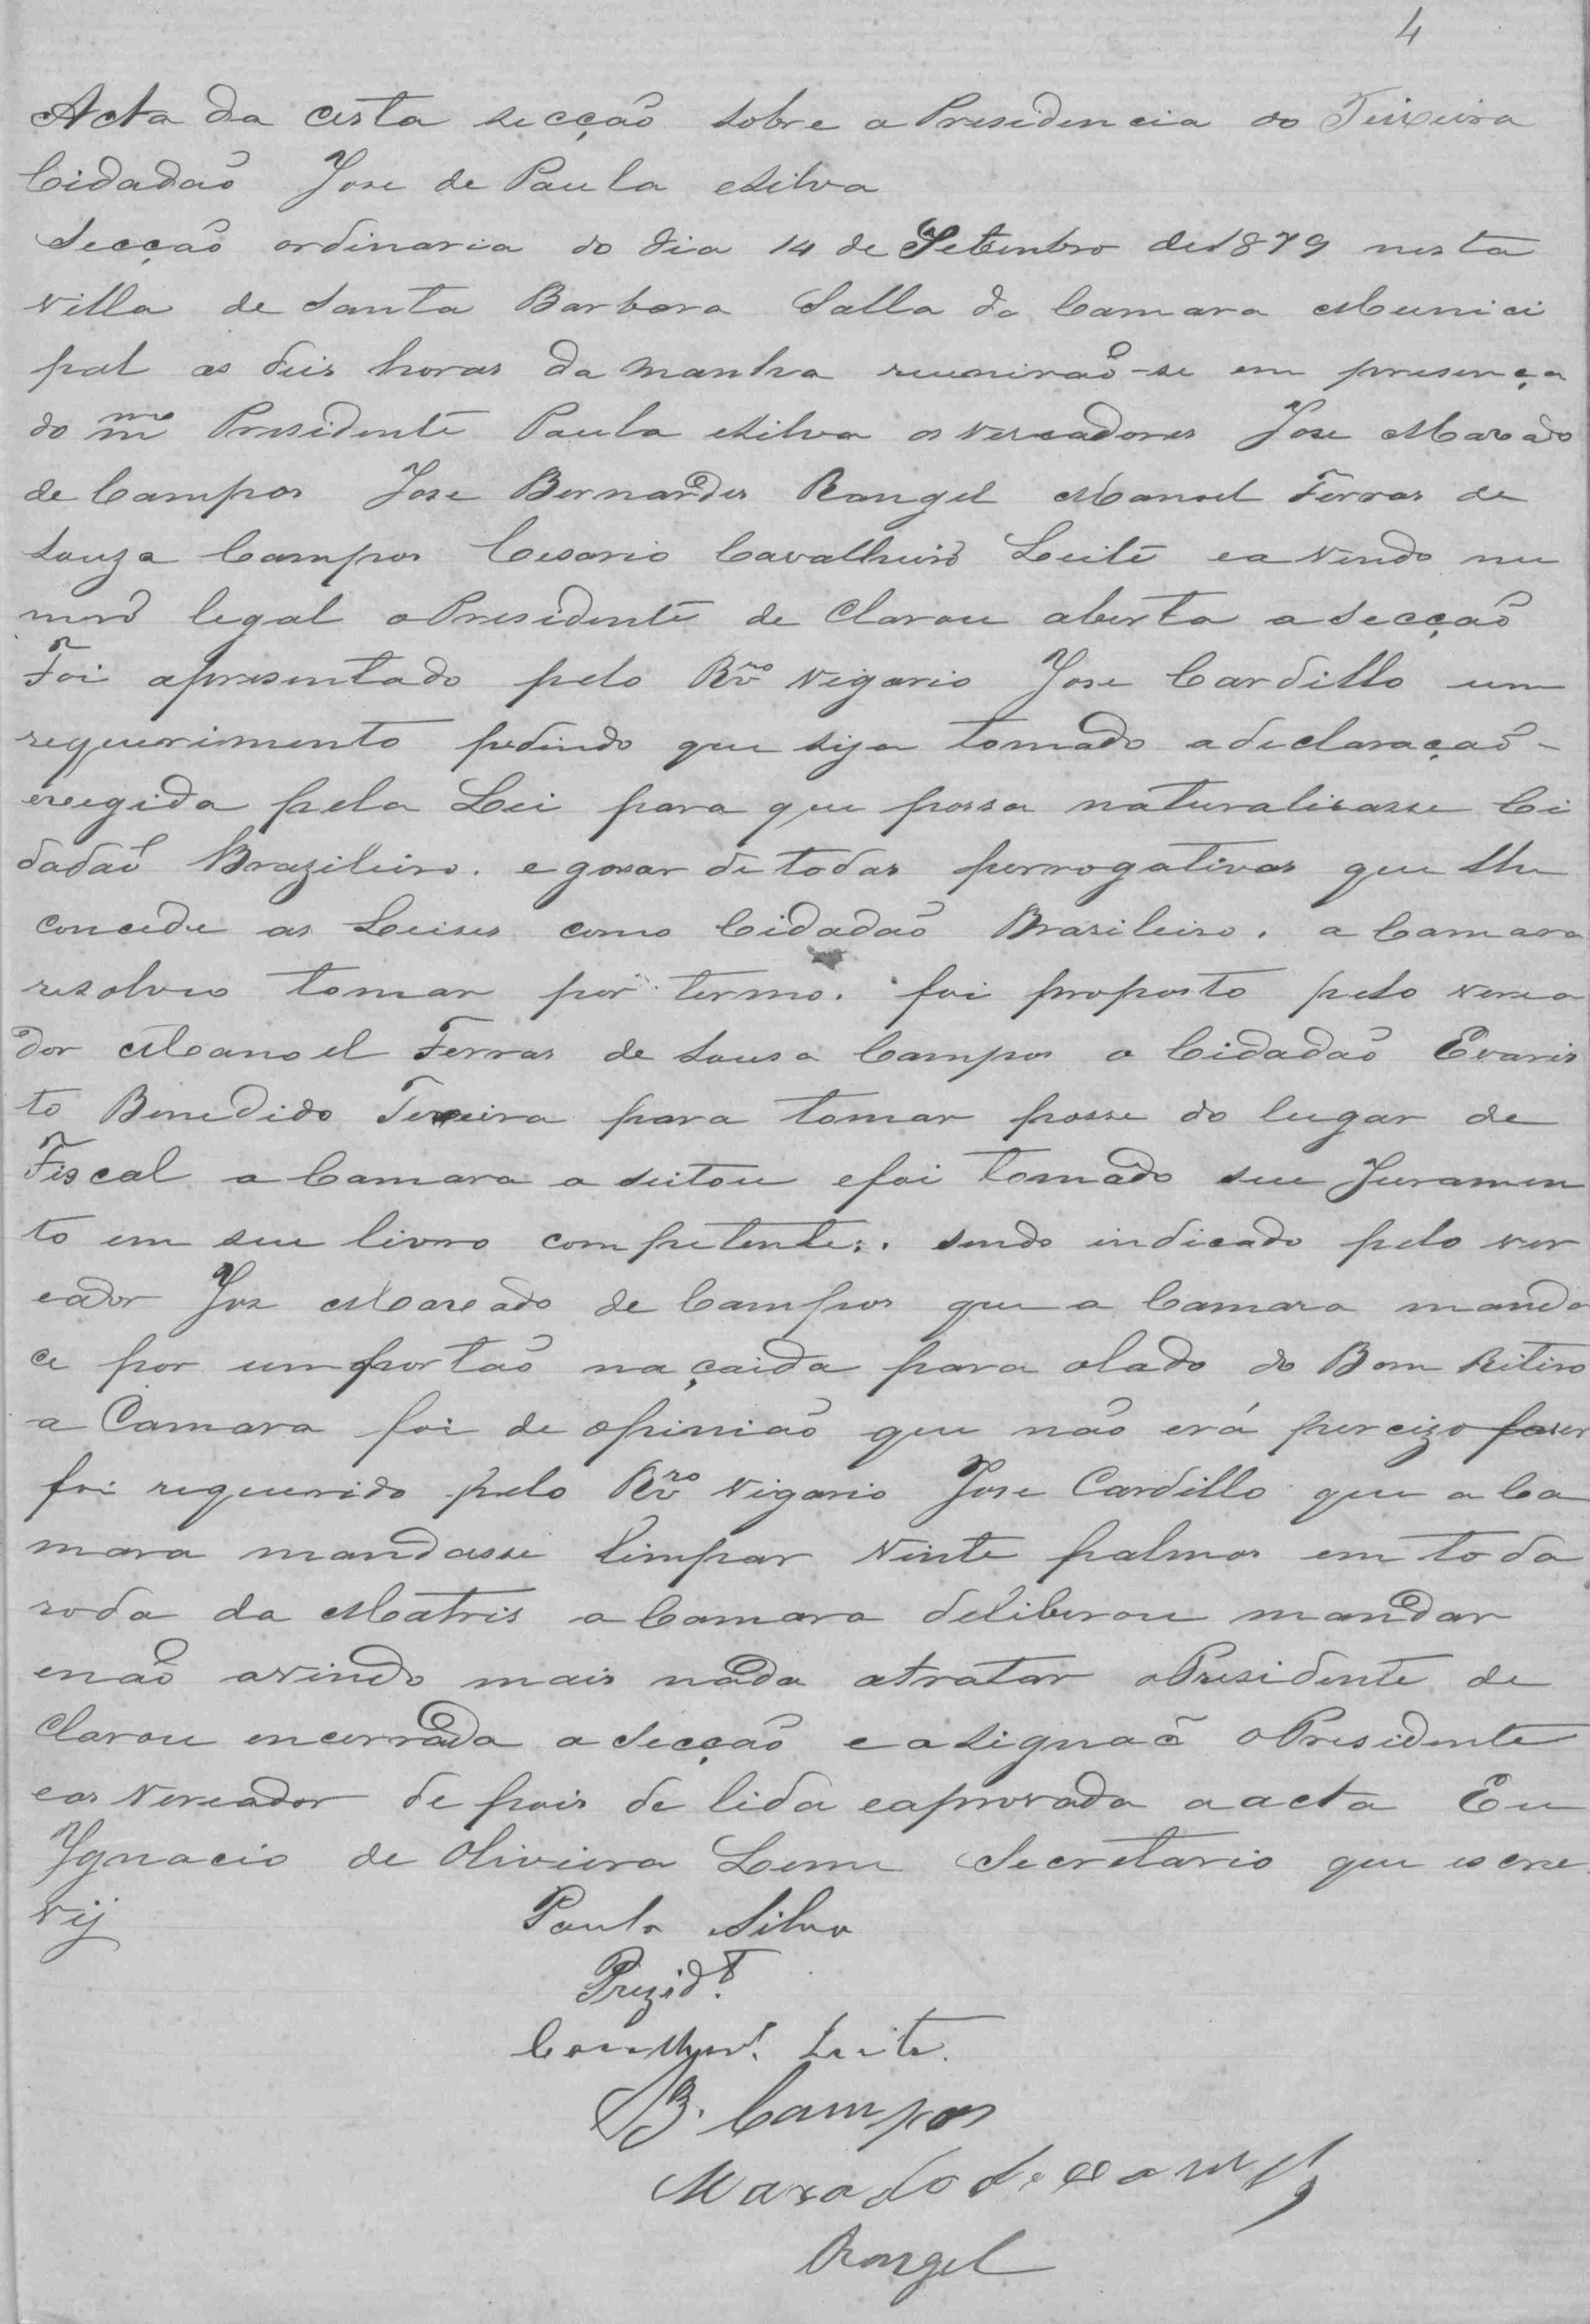 4
Acta da cesta secção sobre a Presidencia do Teixeira
Cidadaõ Jose de Paula eSilva
Secção ordinaria do dia 14 de Setembro de 1879 nesta
villa de Santa Barbara Salla da Camara Munici
pal as deis horas da manha reuniraõ-se em presença
do mmo Presidente Paula eSilva os vereadores Jose Maxado
de Campos Jose Bernardes Rangel Manoel Ferras de
Souza Campos Cesario Cavalheiro Leite ea vendo nu
mero legal oPresidente de Clarou aberta a Secção
Foi apresentado pelo Rvro Vigario Jose Cardillo um
requerimento pedindo que seja tomado adeclaraçaõ -
exegida pela Lei para que possa naturalisasse Ci
dadaõ Brazileiro. egosar de todas perrogativas que lhe
concede as Leises como Cidadaõ Brasileiro. a Camara
resolveo tomar por termo. foi proposto pelo verea
dor Manoel Ferras de Sousa Campos o Cidadaõ Evaris
to Benedido Texeira para tomar posse do lugar de
Fiscal a Camara a seitou efoi tomado seu Juramen
to em seu livro competente. sendo indicado pelo ver
eador Jose Maxado de Campos que a Camara manda
ce por um portaõ na çaida para olado do Bom Retiro
a Camara foi de opiniaõ que não erá percizo faser
foi requerido pelo Rvro Vigario Jose Cardillo que a Ca
mara mandasse limpar vinte palmos em toda
roda da Matris a Camara deliberou mandar
enaõ avindo mais nada atratar oPresidente de
Clarou encerrada a Secção e asignaõ oPresidente
eos Vereador de pois de lida eaprovada aacta Eu
Ygnacio de Oliveira Leme Secretario que escre
vij
Paula Silva
Prezidt.
Leite.
Campos
Maxado de Campos
Rangel